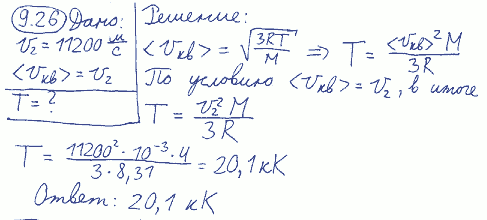 9.26 Дано:
v₂ = 11200 м/с
<vкв> = v₂
T = ?
Решение:
<vкв> = √(3RT/M) ⇒ T = <vкв>² M / 3R
По условию <vкв> = v₂, в итоге
T = v₂² M / 3R
T = 11200² · 10⁻³ · 4 / 3 · 8,31 = 20,1 кК
Ответ: 20,1 кК